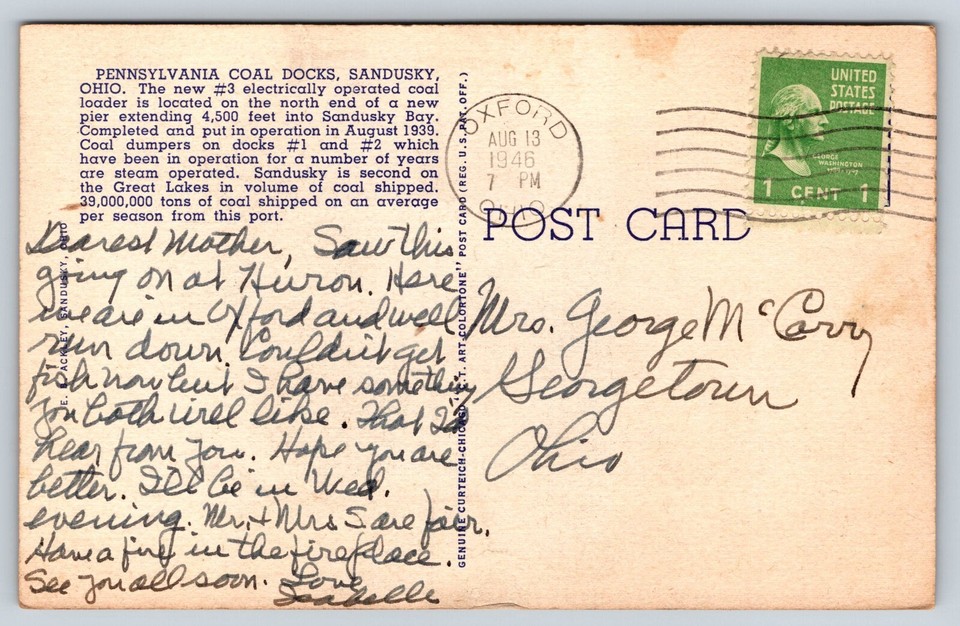 PENNSYLVANIA COAL DOCKS, SANDUSKY,
OHIO. The new #3 electrically operated coal
loader is located on the north end of a new
pier extending 4,500 feet into Sandusky Bay.
Completed and put in operation in August 1939.
Coal dumpers on docks #1 and #2 which
have been in operation for a number of years
are steam operated. Sandusky is second on
the Great Lakes in volume of coal shipped.
39,000,000 tons of coal shipped on an average
per season from this port.
Dearest Mother, Saw this
going on at Huron. Here
we are in Oxford and well
run down. Couldn't get
fish now but I have something
you both will like. That I'd
hear from you. Hope you are
better. I'll be in Wed.
evening. Mr. + Mrs S are fair.
Have a fire in the fireplace.
See you all soon. Love
Isabelle
ACKLEY, SANDUSKY, OHIO
GENUINE CURTEICH-CHICAGO "C.T. ART-COLORTONE" POST CARD (REG. U.S. PAT. OFF.)
OXFORD
AUG 13
1946
7 PM
OHIO
UNITED
STATES
POSTAGE
GEORGE
WASHINGTON
1 CENT 1
POST CARD
Mrs. George McCorry
Georgetown
Ohio